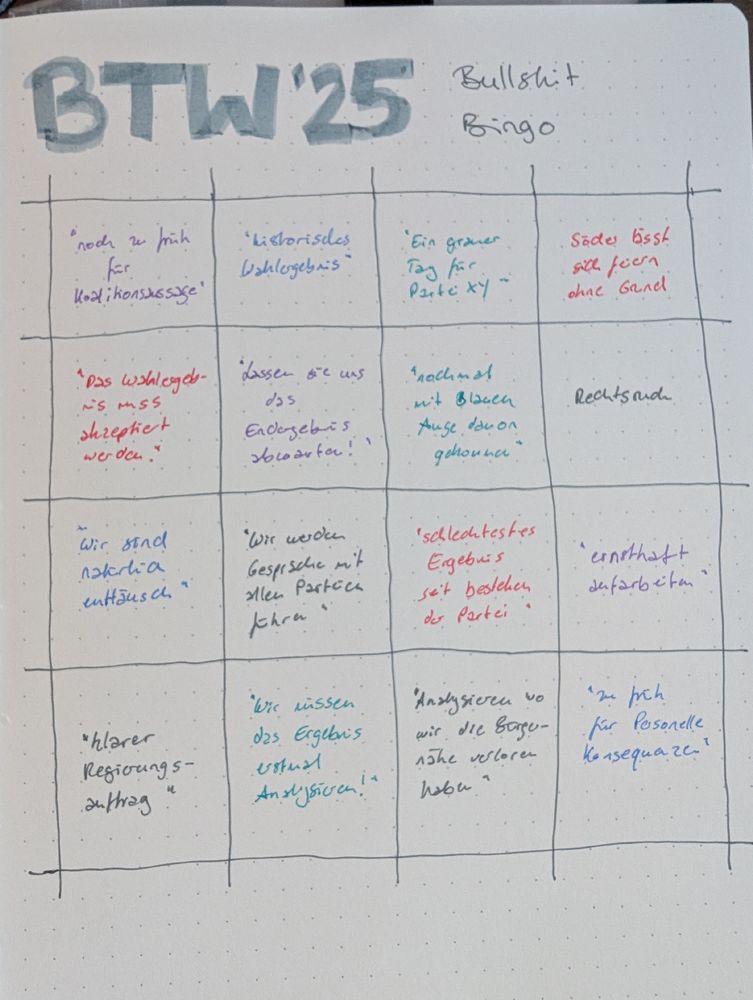 BTW '25
Bullshit
Bingo
"noch zu früh
für
Koalitionsaussage"
"historisches
Wahlergebnis"
"Ein grauer
Tag für
Partei XY"
Söder lässt
sich feiern
ohne Grund
"Das Wahlergeb-
nis muss
akzeptiert
werden."
"Lassen sie uns
das
Endergebnis
abwarten!"
"nochmal
mit Blauen
Auge davon
gekommen"
Rechtsruck
"Wir sind
natürlich
enttäusch"
"Wir werden
Gespräche mit
allen Parteien
führen"
"schlechtestes
Ergebnis
seit bestehen
der Partei"
"ernsthaft
aufarbeiten"
"klarer
Regierungs-
auftrag"
"Wir müssen
das Ergebnis
erstmal
Analysieren!"
"Analysieren wo
wir die Bürger-
nähe verloren
haben"
"zu früh
für Personelle
Konsequenzen"